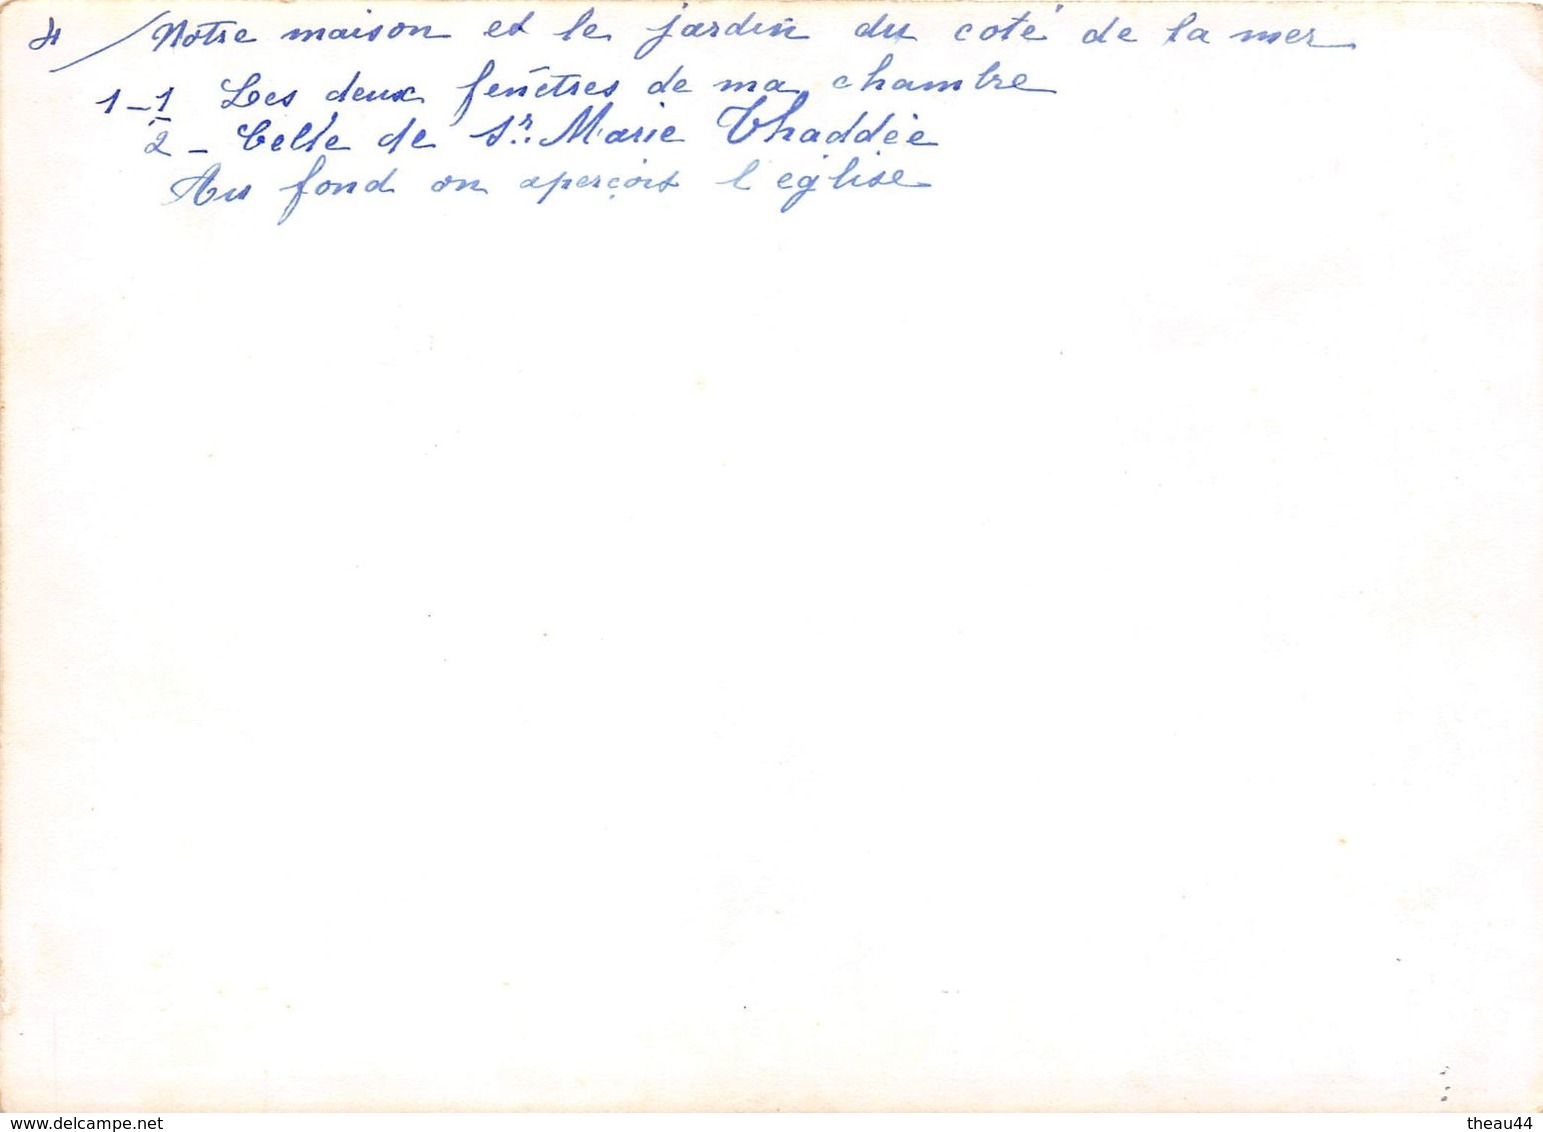 4/ Notre maison et le jardin du coté de la mer
1-1 Les deux fenêtres de ma chambre
2 - Celle de Sr. Marie Thaddée
Au fond on aperçoit l'église
www.delcampe.net
theau44